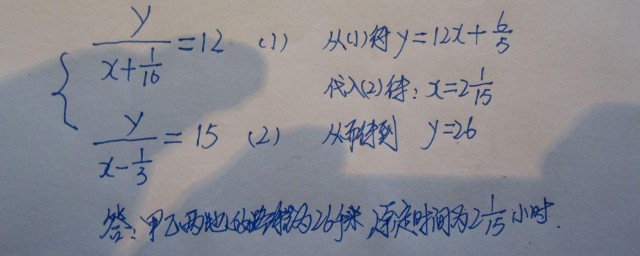 { y/(x+1/10)=12 (1) 从(1)得 y=12x+6/5
代入(2)得: x=2 1/15
y/(x-1/3)=15 (2) 从而得到 y=26
答: 甲乙两地的路程为26千米, 原定时间为2 1/15 小时.